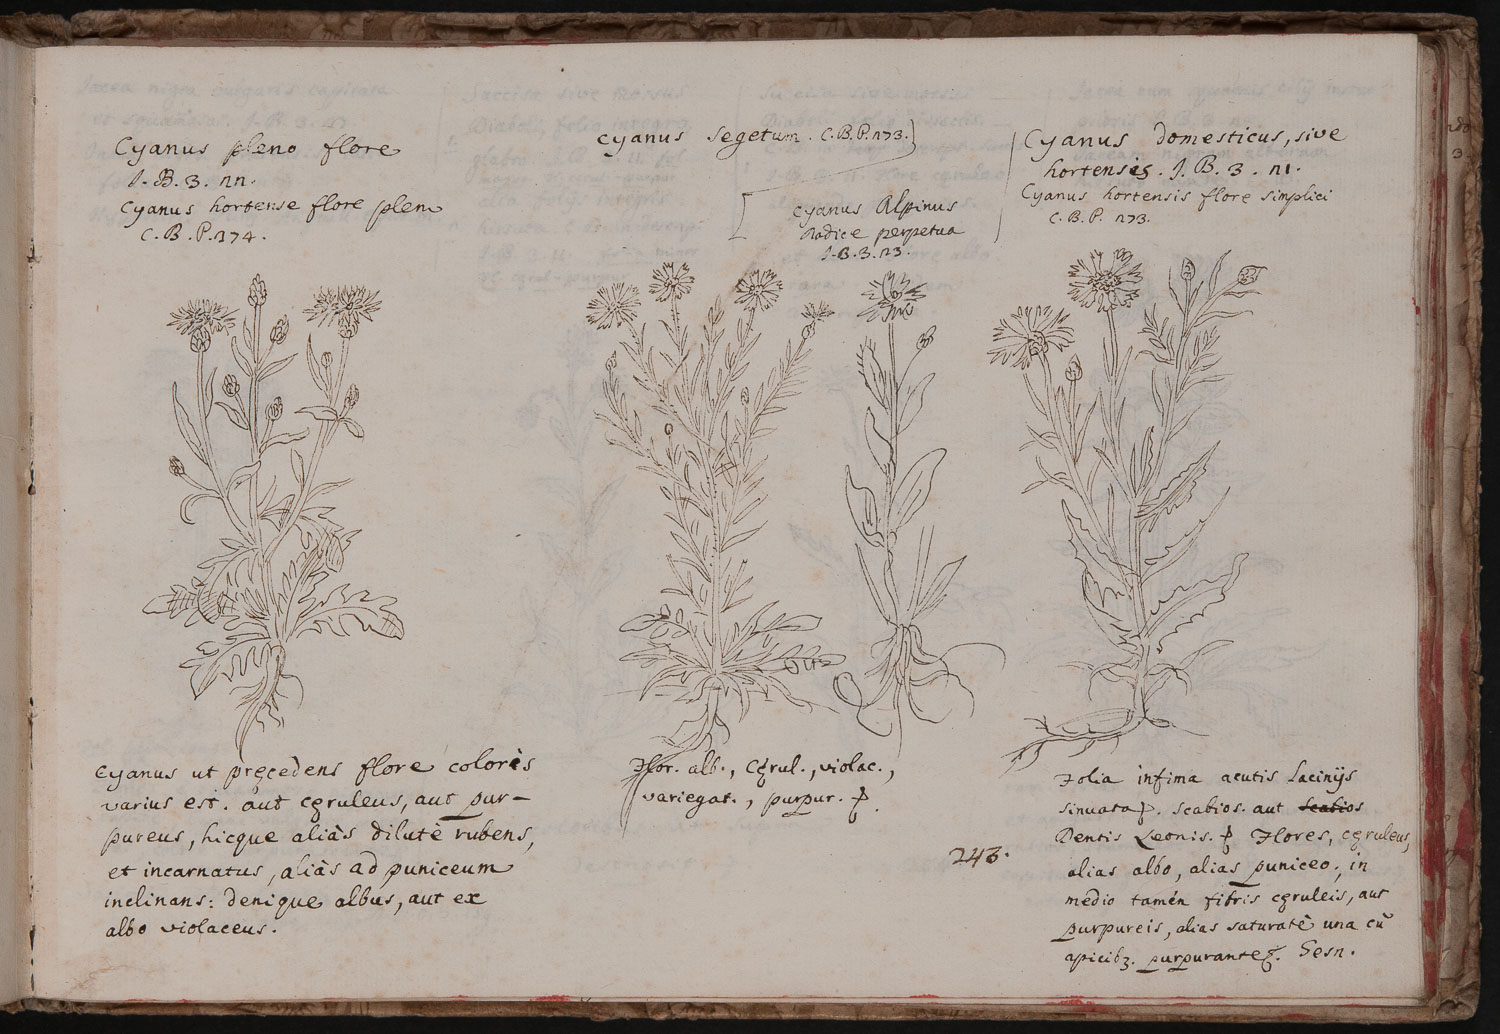 Cyanus pleno flore
I. B. 3. 22.
Cyanus hortense flore pleno
C. B. P. 274.
Cyanus segetum. C. B. P. 273.
Cyanus Alpinus
radice perpetua
I. B. 3. 23.
Cyanus domesticus, sive
hortensis. I. B. 3. 21.
Cyanus hortensis flore simplici
C. B. P. 273.
Cyanus ut pręcedens flore coloris
varius est. aut cęruleus, aut pur-
pureus, hicque aliàs dilutè rubens,
et incarnatus, aliàs ad puniceum
inclinans: denique albus, aut ex
albo violaceus.
Flor. alb., cęrul., violac.,
variegat., purpur.
243.
Folia infima acutis lacinijs
sinuata. Scabios. aut Scabios
Dentis Leonis. Flores, cęruleus,
alias albo, alias puniceo, in
medio tamén fibris cęruleis, aut
purpureis, alias saturatè una cū
apicibꝫ. purpurantes. Gesn.